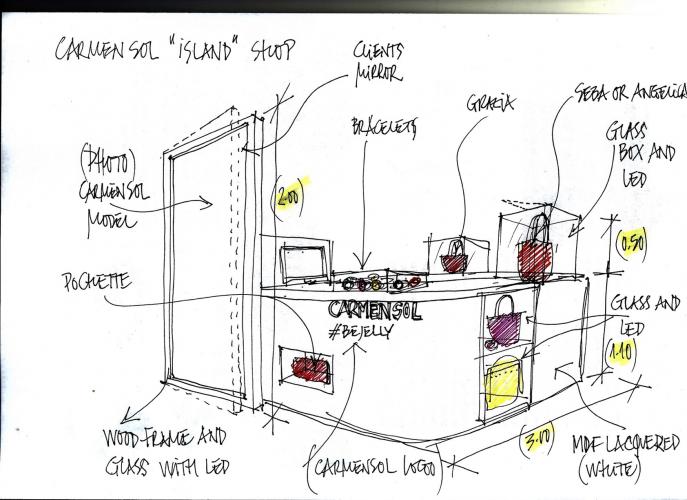 CARMENSOL "ISLAND" SHOP
CLIENTS
MIRROR
GRAZIA
SEBA OR ANGELICA
BRACELETS
GLASS
BOX AND
LED
(PHOTO)
CARMENSOL
MODEL
(2.00)
(0.50)
POCHETTE
CARMENSOL
#BEJELLY
GLASS AND
LED
(1.10)
WOOD FRAME AND
GLASS WITH LED
(CARMENSOL LOGO)
(3.00)
MDF LACQUERED
(WHITE)